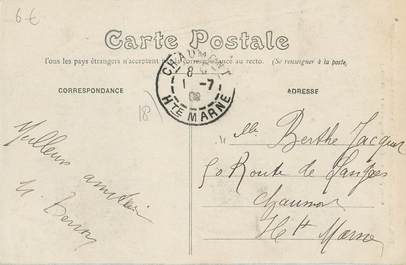 6 €
Carte Postale
Tous les pays étrangers n'acceptent pas la correspondance au recto. (Se renseigner à la poste)
CORRESPONDANCE
ADRESSE
CHAUMONT
8
1 -7
08
HTE MARNE
18)
Mlle Berthe Jacquet
50 Route de Langres
Chaumont
Hte Marne
Meilleurs amitiés